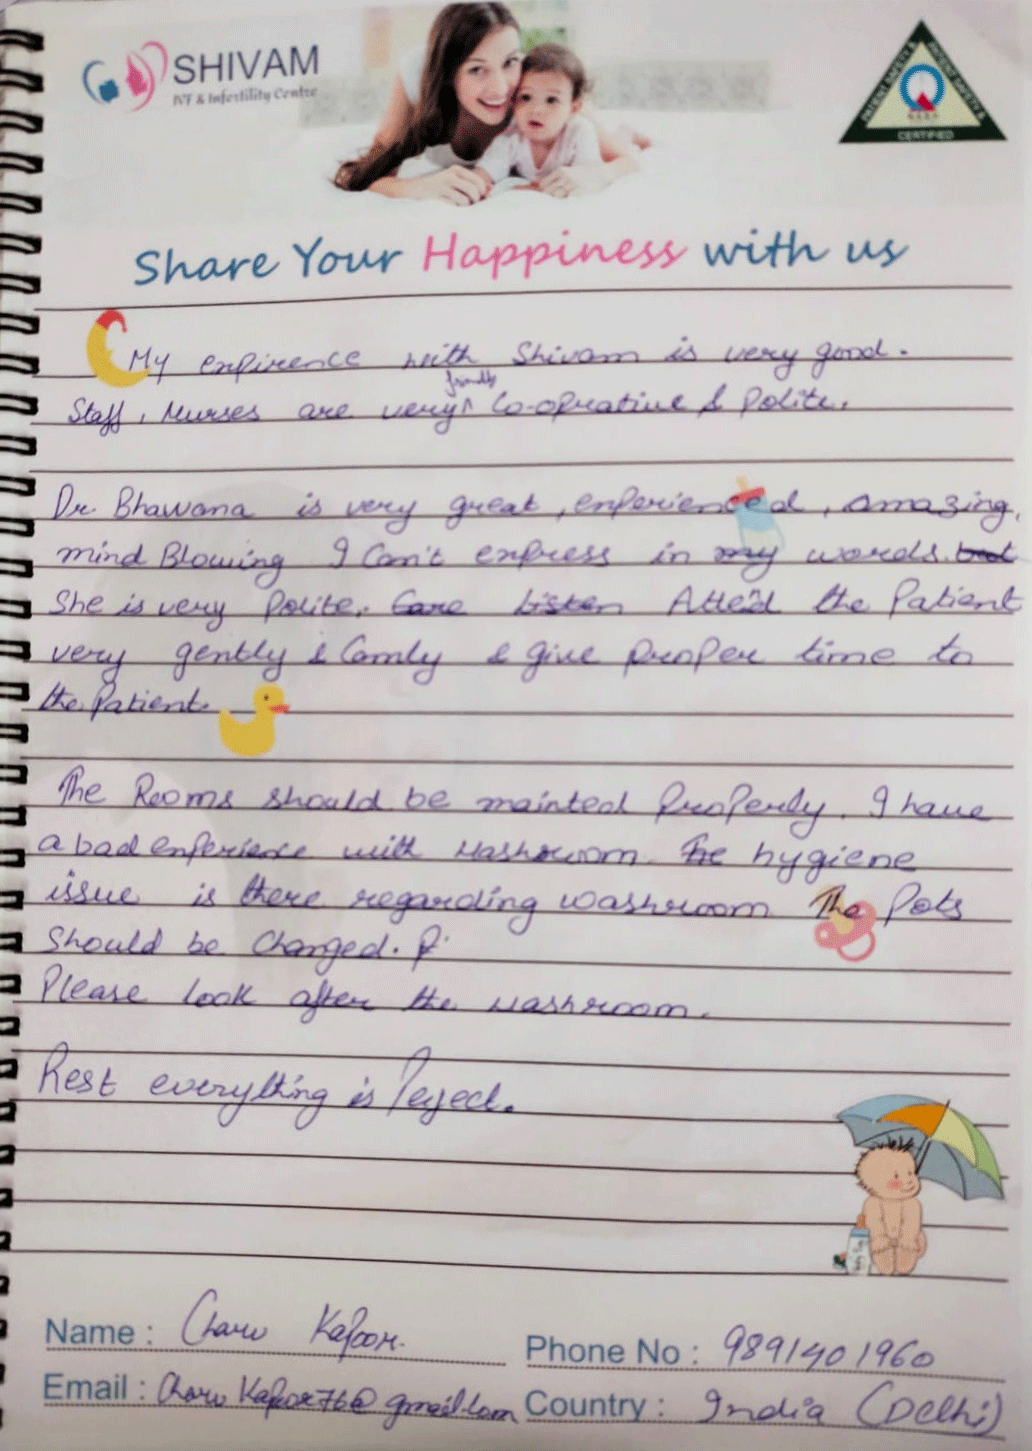 SHIVAM
IVF & Infertility Centre
PATIENT SAFETY &
CERTIFIED
Share Your Happiness with us
My expirence with Shivam is very good.
friendly
Staff, Nurses are very ^ Co-oprative & Polite.
Dr. Bhawana is very great, experienced, amazing,
mind Blowing I Can't express in my words. but
She is very Polite. Care listen Atteed the Patient
very gently & Comly & give proper time to
the Patient.
The Rooms should be mainted properly. I have
a bad experience with washroom The hygiene
issue is there regarding washroom The Pots
Should be Changed. P.
Please look after the washroom.
Rest everything is Perfect.
Name : Charu Kapoor.
Phone No : 9891401960
Email : Charu Kapoor76@gmail.com
Country : India (Delhi)